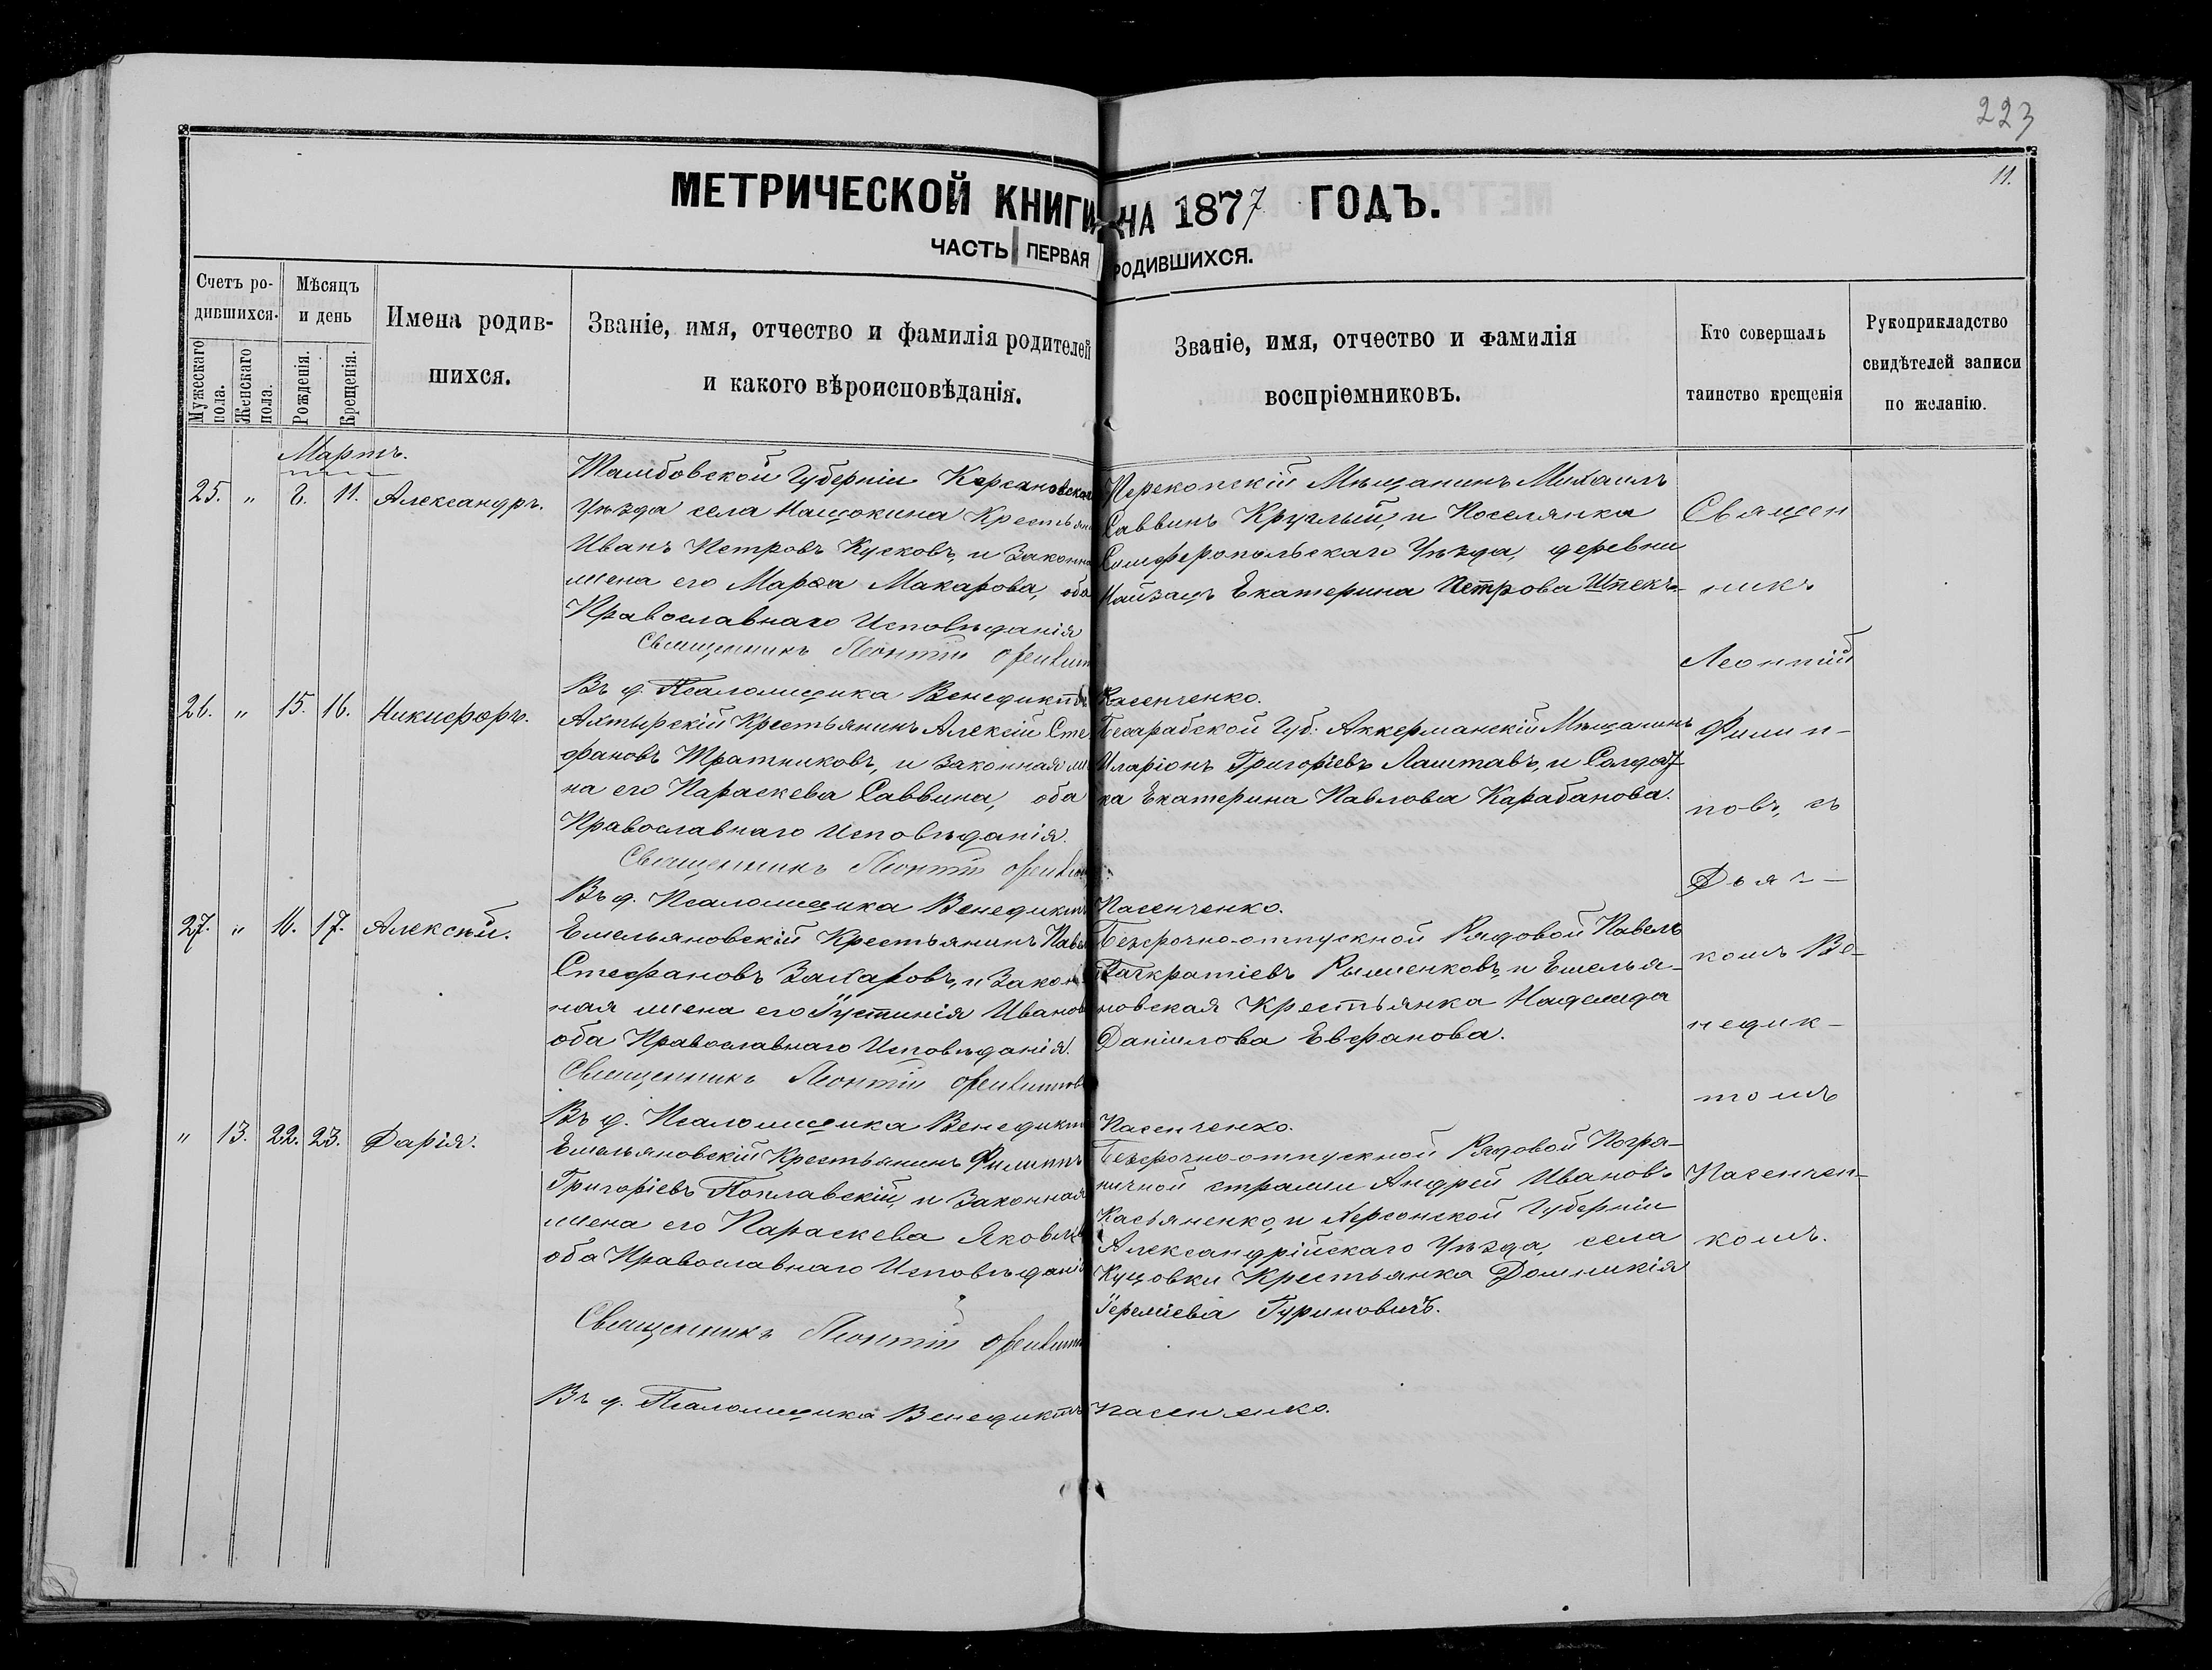 223
11.
МЕТРИЧЕСКОЙ КНИГИ НА 1877 ГОДЪ.
ЧАСТЬ ПЕРВАЯ РОДИВШИХСЯ.
Счетъ ро-
дившихся.
Мужескаго
пола.
Женскаго
пола.
Мѣсяцъ
и день
Рожденія.
Крещенія.
Имена родив-
шихся.
Званіе, имя, отчество и фамилія родителей
и какого вѣроисповѣданія.
Званіе, имя, отчество и фамилія
воспріемниковъ.
Кто совершалъ
таинство крещенія
Рукоприкладство
свидѣтелей записи
по желанію.
Мартъ.
25. " 8. 11. Александръ.
Тамбовской Губерніи Керсановска
Уѣзда села Нащокина Крестьян
Иванъ Петровъ Кусковъ, и Законна
жена его Марѳа Макарова, оба
Православнаго Исповѣданія
Священникъ Леонтій
Въ д. Псаломщика Венедиктъ Пасенченко.
Перекопскій Мѣщанинъ Михаилъ
Саввинъ Круглый, и Поселянка
Симферопольскаго Уѣзда, деревни
Найзацъ Екатерина Петрова Штекъ
26. " 15. 16. Никифоръ.
Ахтырскій Крестьянинъ Алексій Сте
фановъ Тратниковъ, и Законная же
на его Параскева Саввина, оба
Православнаго Исповѣданія.
Священникъ Леонтій
Въ д. Псаломщика Венедиктъ Пасенченко.
Бессарабской Губ: Аккерманскій Мѣщанинъ
Иларіонъ Григорьевъ Лаштавъ, и Солдат
ка Екатерина Павлова Карабанова.
27. " 16. 17. Алексѣй.
Емельяновскій Крестьянинъ Павел
Стефановъ Захаровъ, и Закон
ная жена его Іустинія Иванов
оба Православнаго Исповѣданія.
Священникъ Леонтій
Въ д. Псаломщика Венедикт Пасенченко.
Безсрочно-отпускной Рядовой Павелъ
Панкратіевъ Рыженковъ, и Емелья-
новская Крестьянка Надежда
Даніилова Евфанова.
" 13. 22. 23. Дарія.
Емельяновскій Крестьянинъ Филиппъ
Григоріевъ Поплавскій, и Законная
жена его Параскева Яковл
оба Православнаго Исповѣдані
Священникъ Леонтій
Въ д. Псаломщика Венедиктъ Пасенченко.
Безсрочно-отпускной Рядовой Погра-
ничной стражи Андрей Ивановъ
Касьяненко, и Херсонской Губерніи
Александрійскаго Уѣзда, села
Куцовки Крестьянка Домникія
Іереміева Гуриновичъ.
Священ
никъ
Леонтій
Филип-
повъ, съ
Дьяч-
комъ Ве-
недик-
томъ
Пасенчен-
комъ.